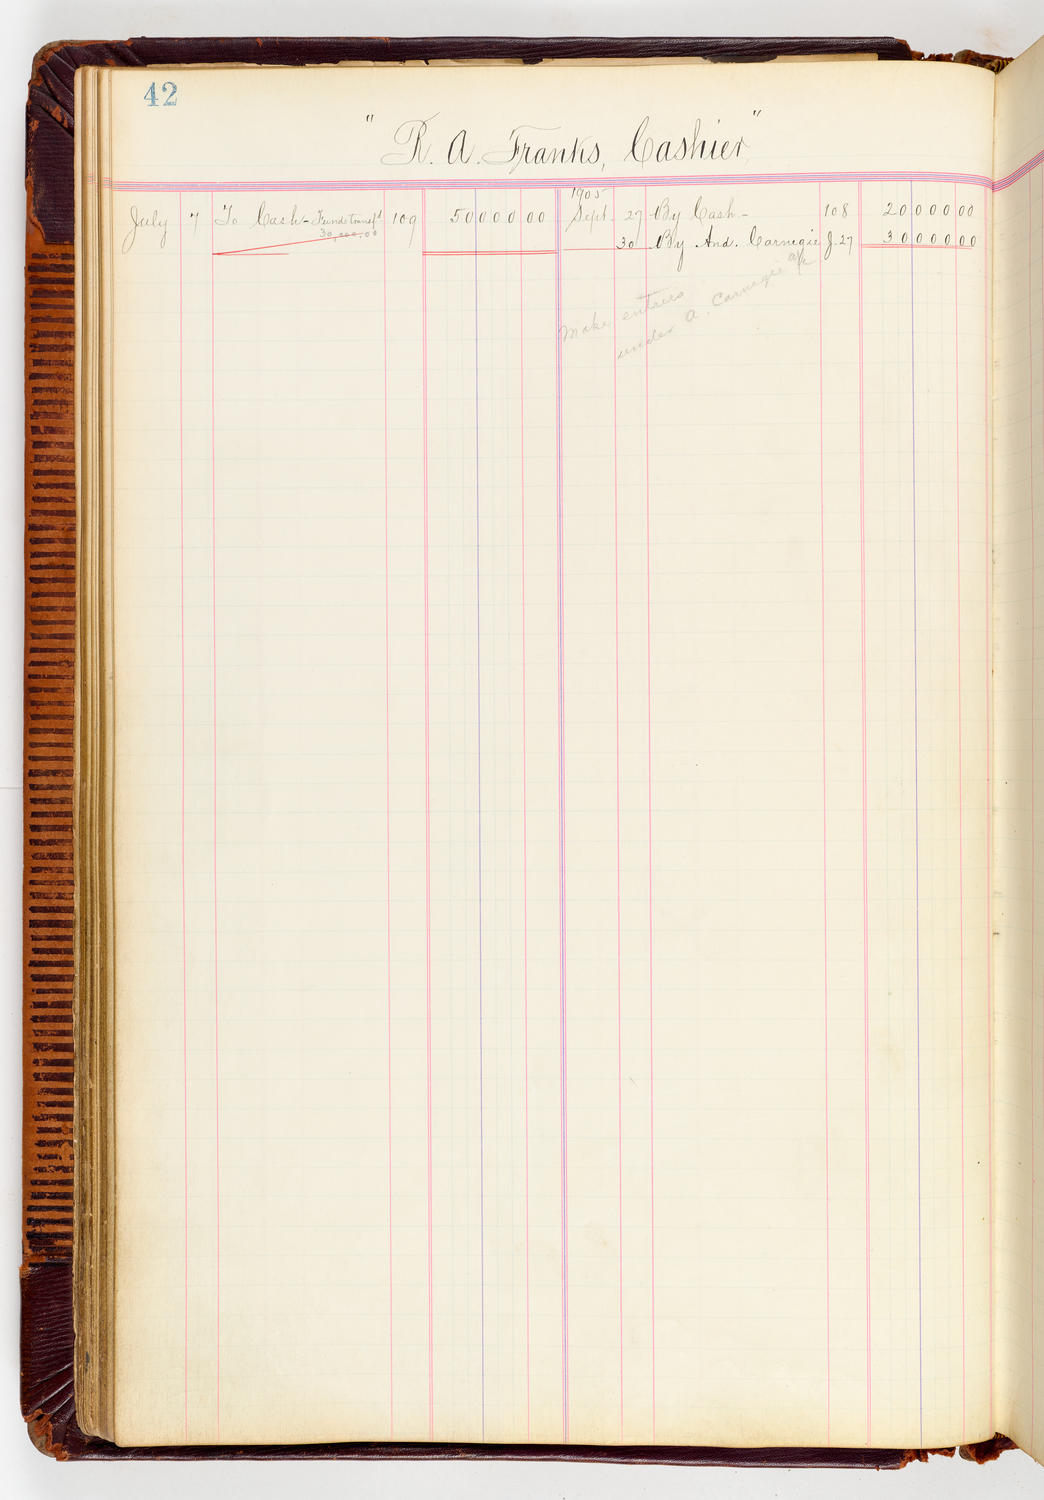 42
"R. A. Franks, Cashier"
July 7 To Cash - Funds transf'd 109 50000 00
30,000.00
1905
Sept. 27 By Cash - 108 20000 00
30 By And. Carnegie J. 27 30000 00
Make entries
under A. Carnegie a/c